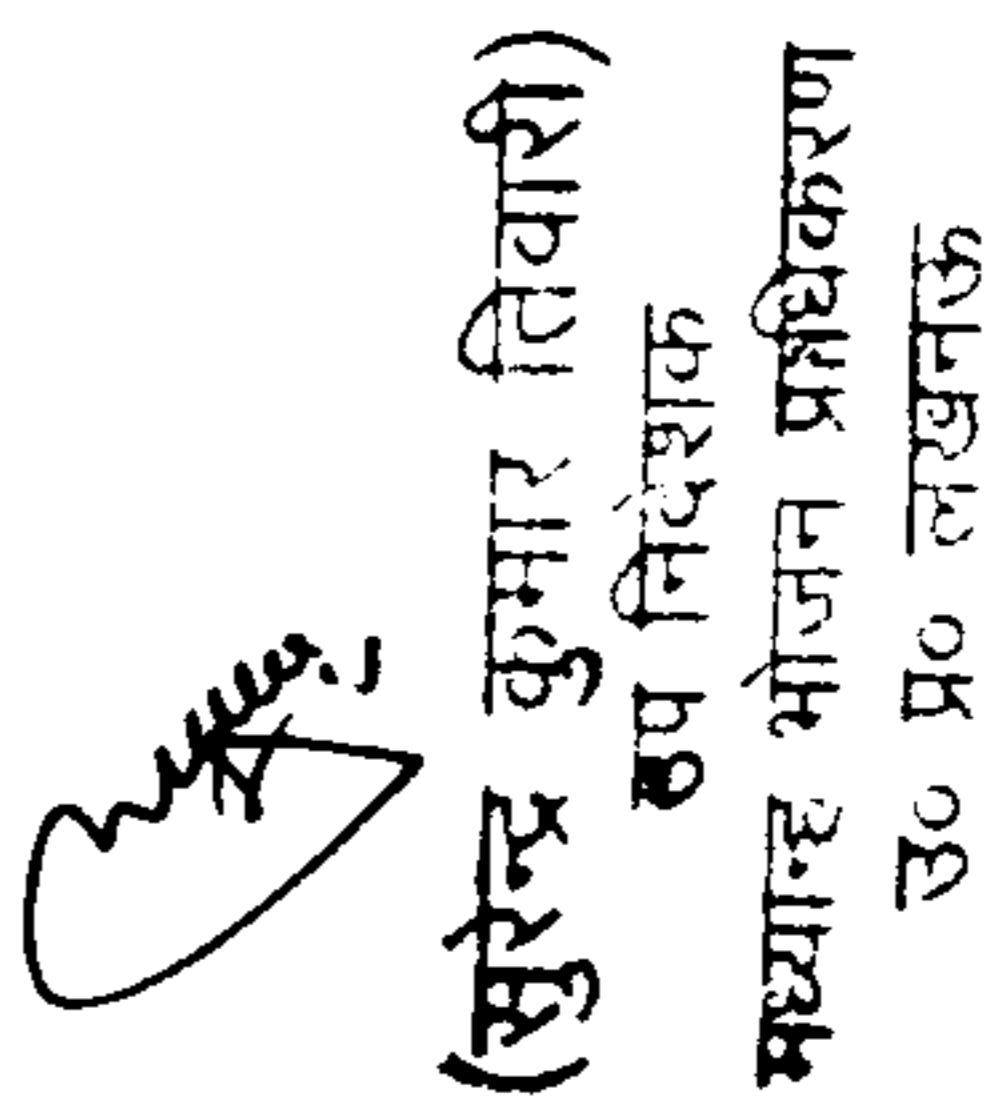 (सुरेन्द्र कुमार तिवारी)
उप निदेशक
मध्याह्न भोजन प्राधिकरण
उ० प्र० लखनऊ